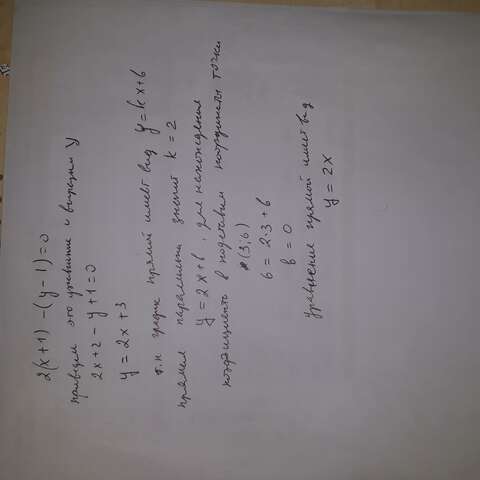 2(x+1) - (y-1) = 0
приведем это уравнение и выразим y
2x+2 - y+1 = 0
y = 2x+3
т.к график прямой имеет вид y = kx+b
прямая параллельна значит k = 2
y = 2x+b, для нахождения
коэффициента b подставим координаты точки
(3,6)
6 = 2·3+b
b = 0
уравнение прямой имеет вид
y = 2x